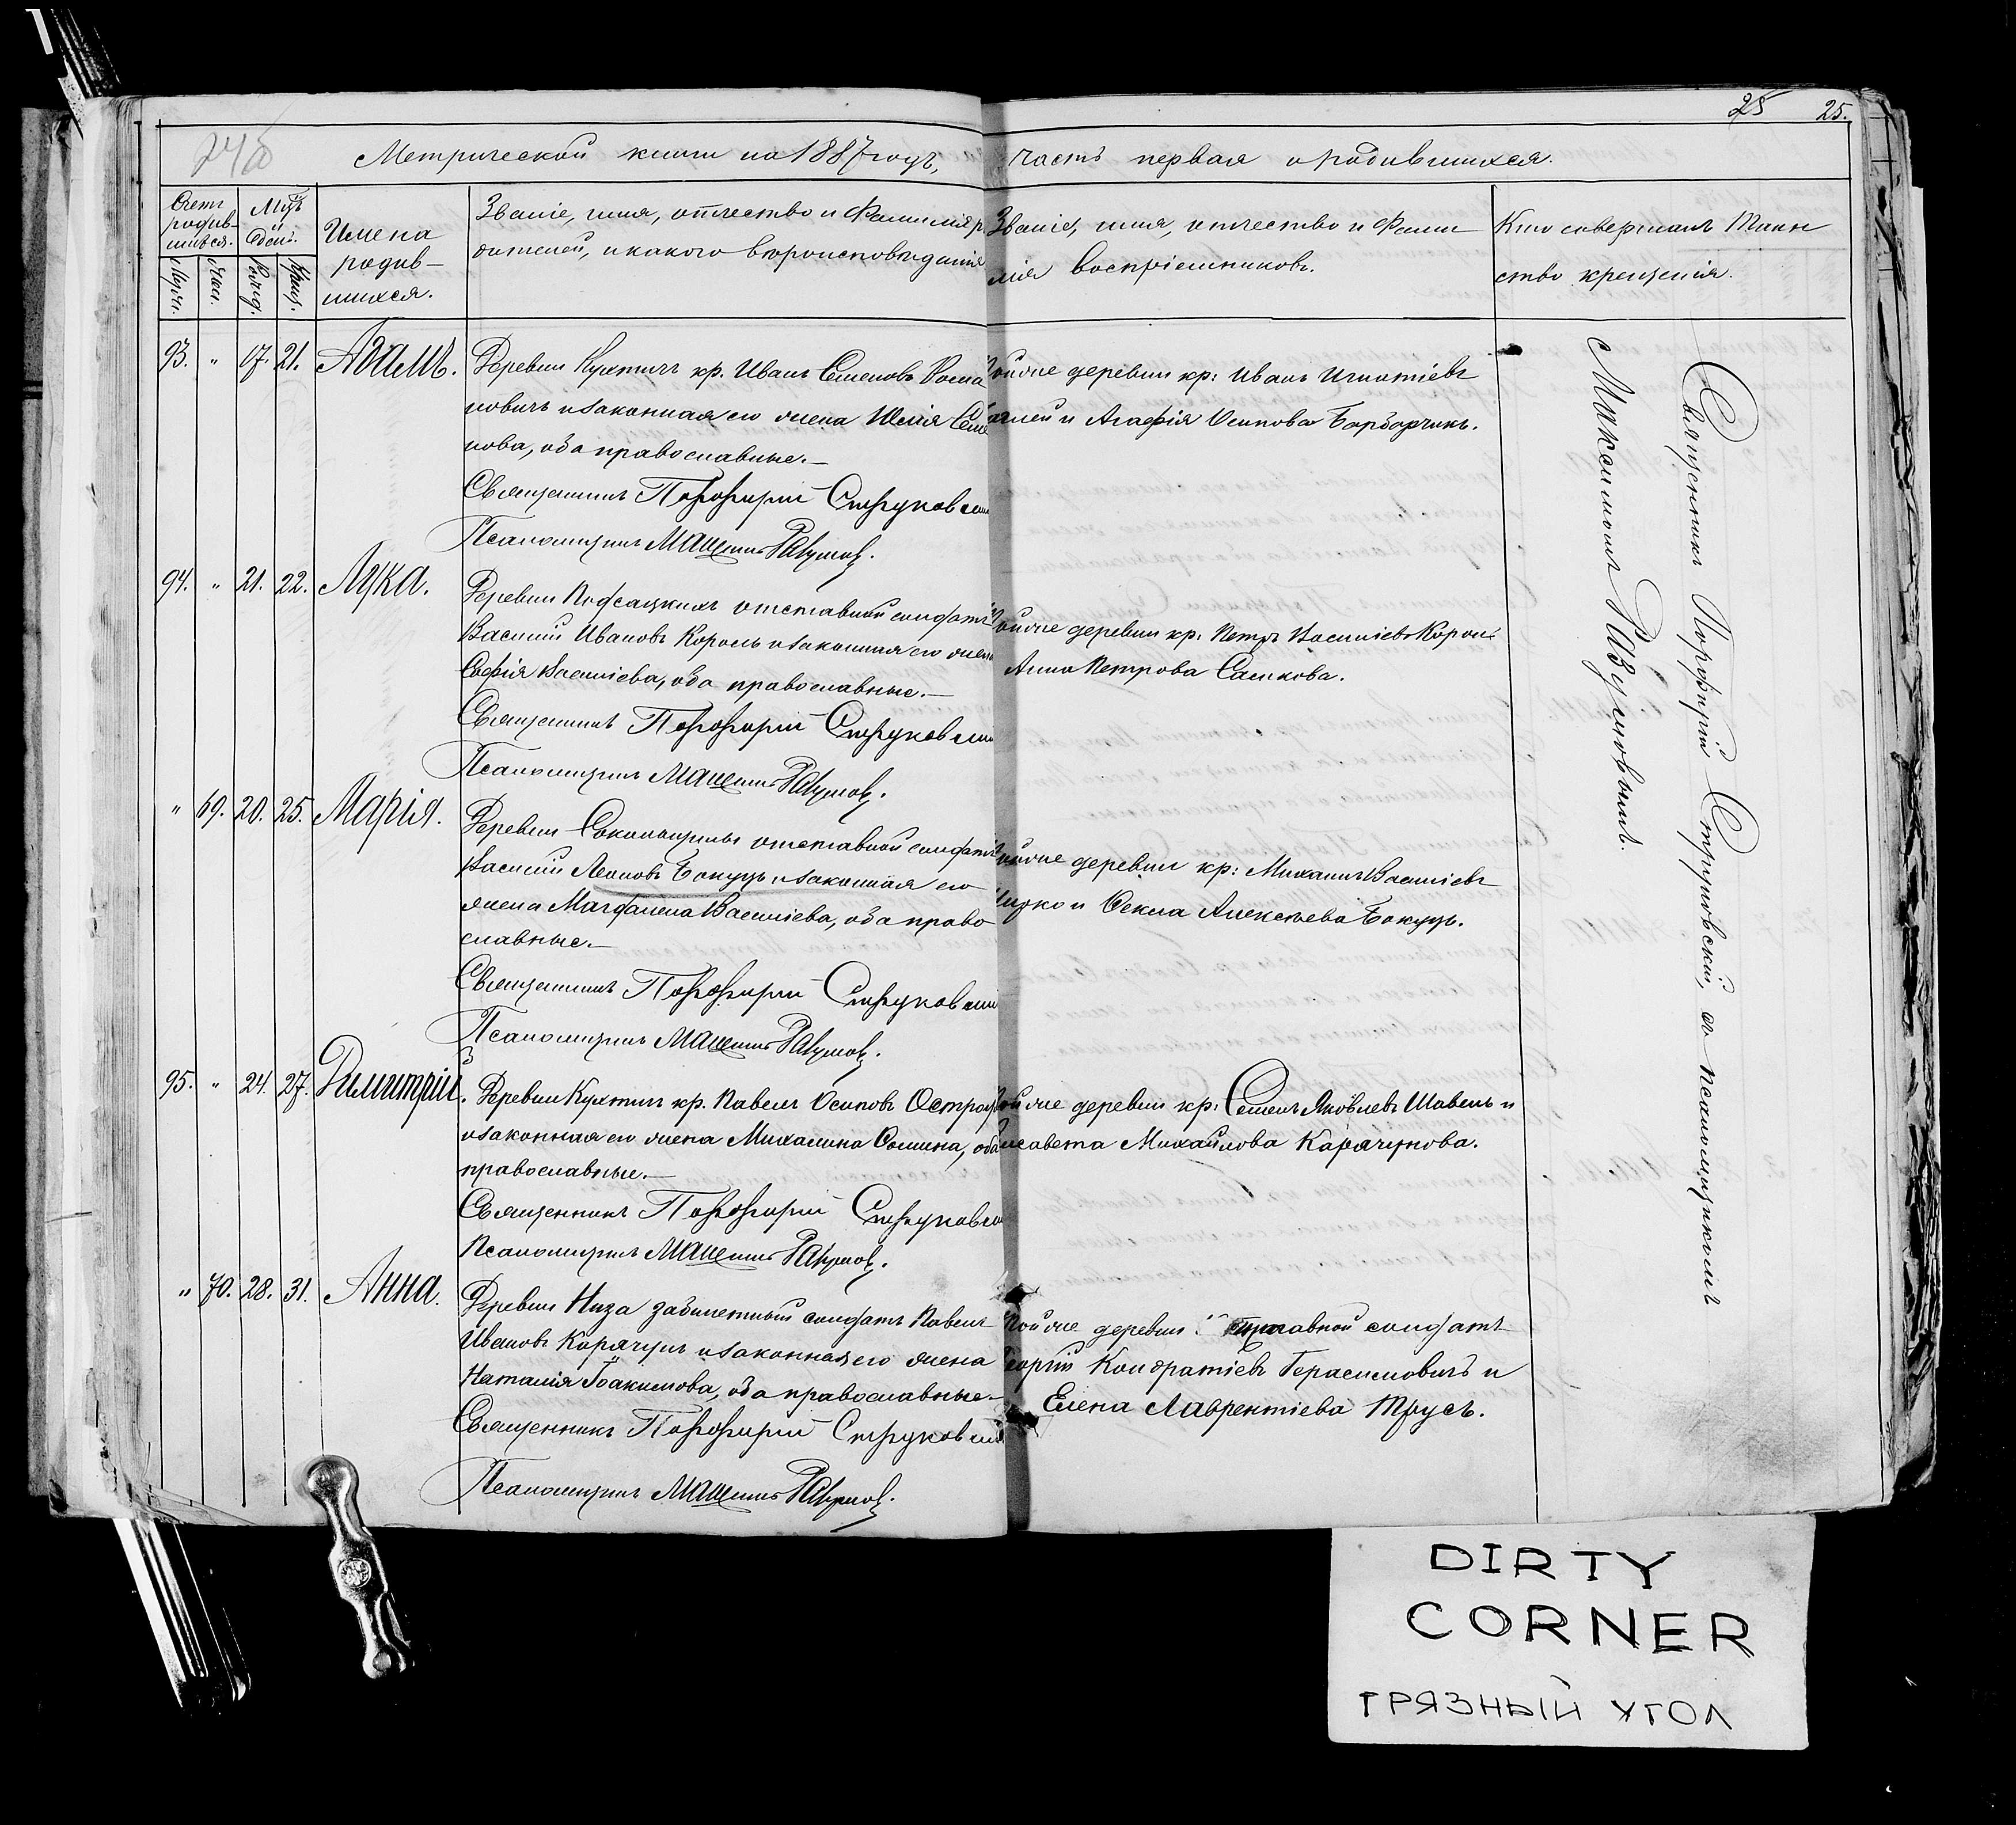 25 25.
Метрической книги на 1887 годъ, часть первая о родившихся.
Счетъ родив-шихся.
Мѣсяцъ и день.
Муж.
Жен.
Рожд.
Крещ.
Имена
родив-
шихся.
Званіе, имя, отчество и Фамилія ро
дителей, и какого вѣроисповѣданія
Званіе, имя, отчество и Фами
лія воспріемниковъ.
Кто совершалъ Таин
ство крещенія.
93. " 17. 21. Адамъ.
Деревни Кухтичъ кр. Иванъ Семеновъ Рома
новичъ и законная его жена Юлія Семе
нова, оба православные.—
Священникъ Порфирій Струковскій
Псаломщикъ Разумов
Той же деревни кр: Иванъ Игнатіевъ
и Агафія Осипова Барборчикъ.
94. " 21. 22. Лука.
Деревни Подсадскихъ отставной солдатъ
Василій Ивановъ Король и законная его жена
Софія Васильева, оба православные.—
Священникъ Порфирій Струковскій
Псаломщикъ Разумов
Той же деревни кр. Петръ Васильевъ Король
Анна Петрова Сашкова.
" 69. 20. 25. Марія.
Деревни отставной солдатъ
Василій Леоновъ Бокуць и законная его
жена Магдалена Васильева, оба право
славные.—
Священникъ Порфирій Струковскій
Псаломщикъ Разумов
Той же деревни кр: Михаилъ Васильевъ
и Фекла Алексѣева Бокуць.
95. " 24. 27. Димитрій.
Деревни Кухтичъ кр. Павелъ Осиповъ
и законная его жена Михалина Ѳомина, оба
православные.—
Священникъ Порфирій Струковскій
Псаломщикъ Разумов
Той же деревни кр: Семенъ Яковлевъ Шавель и
Елисавета Михайлова Карачунова.
" 70. 28. 31. Анна.
Деревни Низа забилетный солдатъ Павелъ
Ивановъ Карачунъ и законная его жена
Наталія Іоакимова, оба православные.—
Священникъ Порфирій Струковскій
Псаломщикъ Разумов
Той же деревни: отставной солдатъ
Георгій Кондратіевъ Герасимовичъ и
Елена Лаврентіева Трусь.
Священникъ Порфирій Струковскій, съ псаломщикомъ
Максимомъ Разумовымъ.
DIRTY
CORNER
ГРЯЗНЫЙ УГОЛ